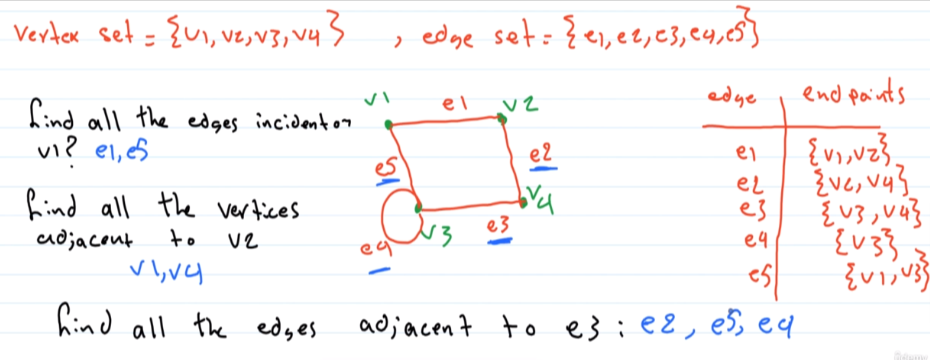 Vertex set = {v1, v2, v3, v4} , edge set = {e1, e2, e3, e4, e5}
find all the edges incident on
v1? e1, e5
find all the vertices
adjacent to v2
v1, v4
v1 e1 v2
e5 e2
v4
v3 e3
e4
edge endpoints
e1 {v1, v2}
e2 {v2, v4}
e3 {v3, v4}
e4 {v3}
e5 {v1, v3}
find all the edges adjacent to e3 : e2, e5, e4